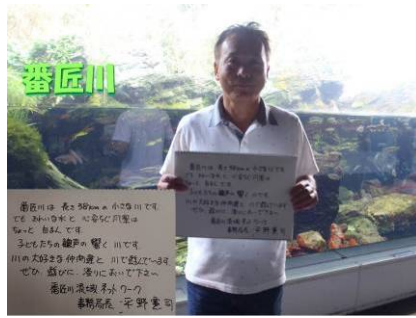 番匠川
番匠川は 長さ38kmの 小さな川です
でも みいなれと 心安らぐ川里は
ちょっと 自まんです
子どもたちの 歓声の 響く 川です
川の大好きな仲間達と 川で遊んでいます
ぜひ 遊びに、湯りにおいで下さい
番匠川流域ネットワーク
事務局長 平野憲司